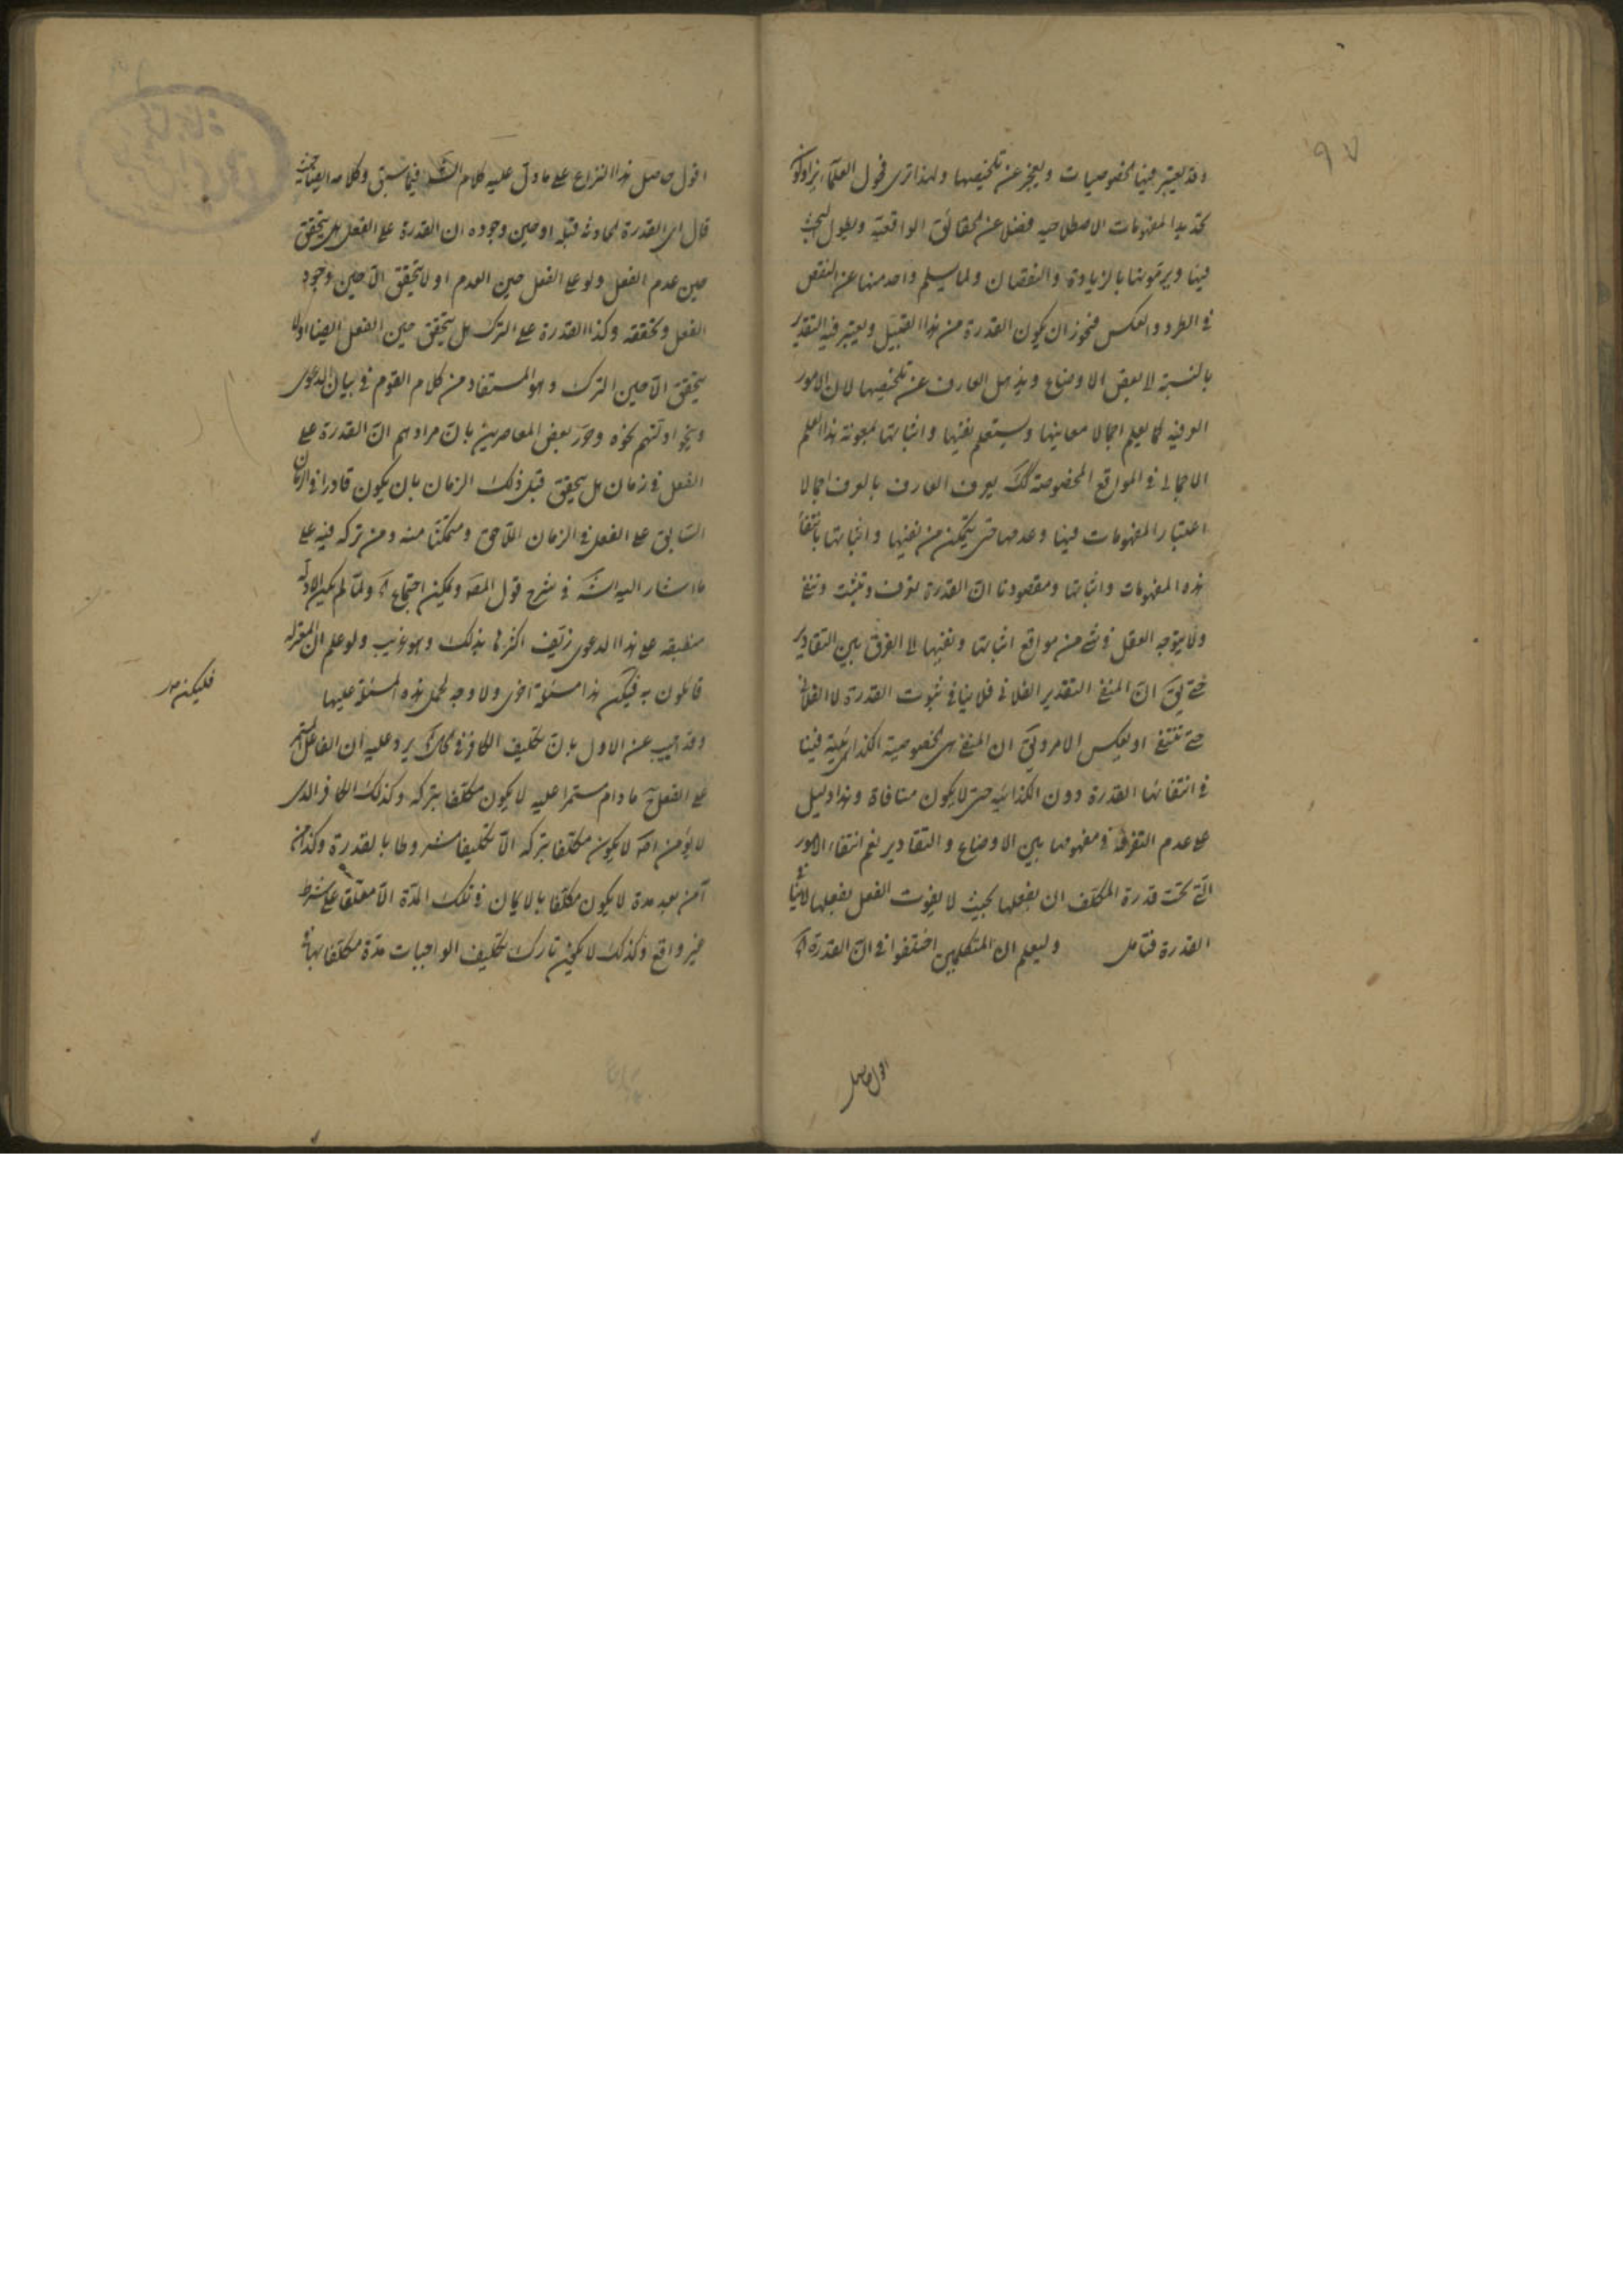 ٩٧
وقد يعتبر فيها خصوصيات ويعجز عن تلخيصها ولهذا ترى فحول العلماء
تحديد المفهومات الاصطلاحيه فضلا عن الحقائق الواقعية ويطول البحث
فيها ويرمونها بالزيادة والنقصان ولما يسلم واحد منها عن النقض
في الطرد والعكس فنجوز ان يكون القدرة من هذا القبيل ويعتبر فيه التقدير
بالنسبة لا بعض الاوضاع ويذهل العارف عن تلخيصها لان الامور
العرفيه كما يعلم اجمالا معانيها وسيتعلم نفيها واثباتها بمعونة هذا العلم
الاجمالى في المواقع المخصوصة كك يعرف العارف بالعرف اجمالا
اعتبار المفهومات فيها وعدمها حتى يتمكن من نفيها واثباتها بانتفاء
هذه المفهومات واثباتها ومقصودنا ان القدرة تعرف وتثبت وتنفى
ولا يتوجه العقل في شئ من مواقع اثباتها ونفيها لا الفرق بين التقادير
حتى يق ان المنفى التقدير الفلانى فلا ينافى ثبوت القدرة لا الفلانى
حتى تنتفى او يعكس الامر ويق ان المنفى هى الخصوصية الكذائية فينا
في انتفائها القدرة دون الكذائيه حتى لا يكون منافاة وهذا دليل
على عدم التفرقة في مفهومها بين الاوضاع والتقادير نعم انتفاء الامور
التى تحت قدرة المكلف ان يفعلها بحيث لا يفوت الفعل بفعلها لا ينافى
القدرة فتامل وليعلم ان المتكلمين اختلفوا في ان القدرة اه
اقول حاصل
اقول حاصل هذا النزاع على ما دل عليه كلام الش فيما سبق وكلامه ايضا حيث
قال اى القدرة الحادثه قبله او حين وجوده ان القدرة على الفعل هل يتحقق
حين عدم الفعل ولو على الفعل حين العدم او لا يتحقق الا حين وجود
الفعل وتحققه وكذا القدرة على الترك هل يتحقق حين الفعل ايضا او لا
يتحقق الا حين الترك وهو المستفاد من كلام القوم في بيان الدعوى
وينحو ادلتهم نحوه وجوز بعض المعاصرين بان مرادهم ان القدرة على
الفعل في زمان هل يتحقق قبل ذلك الزمان بان يكون قادرا في الزمان
السابق على الفعل في الزمان اللاحق ومتمكنا منه ومن تركه فيه على
ما اشار اليه الش في شرح قول المص ويمكن احتجاج اه ولما لم يكن الادلة
منطبقه على هذا الدعوى زيف اكثرها بذلك وهو غريب ولو علم ان المعتزله
قائلون به فيكن هذا مسئلة اخرى ولا وجه لحمل هذه المسئلة عليها
وقد اجيب عن الاول بان تكليف الكافر في الحال اه يرد عليه ان الفاعل المستمر
على الفعل ما دام مستمرا عليه لا يكون مكلفا بتركه وكذلك الكافر الذى
لا يؤمن اصلا لا يكون مكلفا بتركه الا تكليفا مشروطا بالقدرة وكذا من
آمن بعد مدة لا يكون مكلفا بالايمان في تلك المدة الا معلقا على شرط
غير واقع وكذلك لا يكون تارك تكليف الواجبات مدة مكلفا بها
فليكن ص